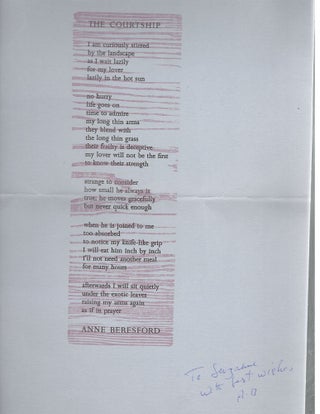 THE COURTSHIP
I am curiously stirred
by the landscape
as I wait lazily
for my lover
lazily in the hot sun
no hurry
life goes on
time to admire
my long thin arms
they blend with
the long thin grass
their frailty is deceptive
my lover will not be the first
to know their strength
strange to consider
how small he always is
true, he moves gracefully
but never quick enough
when he is joined to me
too absorbed
to notice my knife-like grip
I will eat him inch by inch
I'll not need another meal
for many hours
afterwards I will sit quietly
under the exotic leaves
raising my arms again
as if in prayer
ANNE BERESFORD
To Suzanne
with best wishes
A B